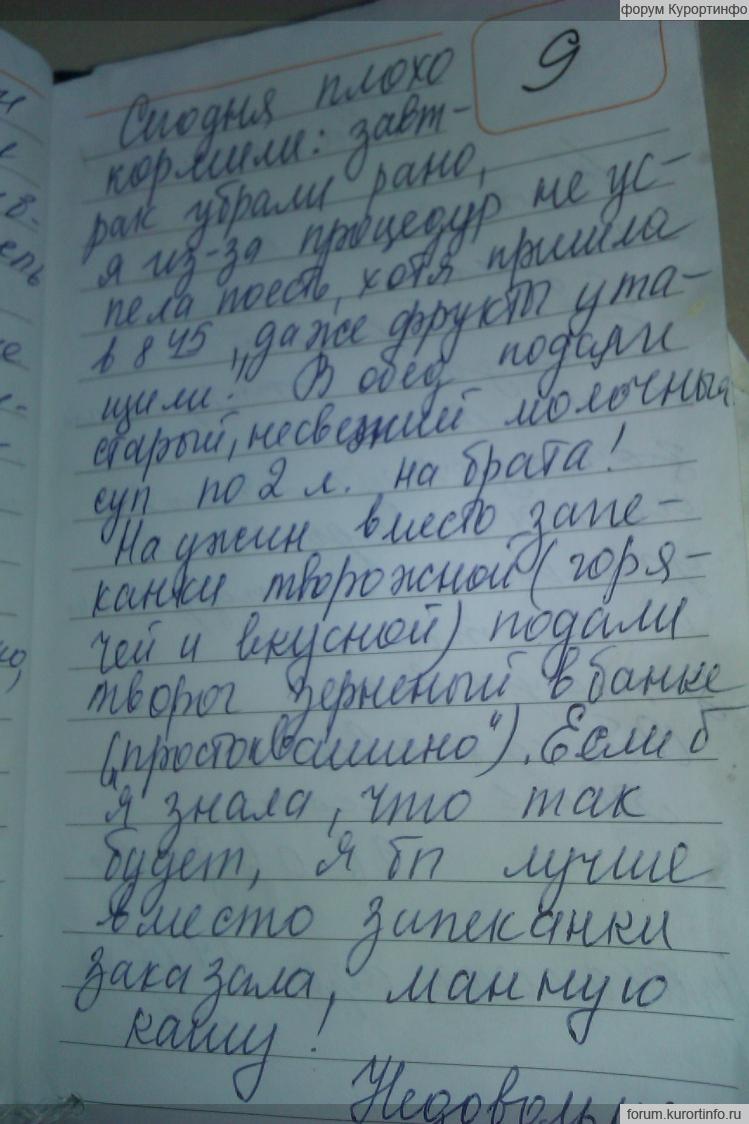 форум Курортинфо
9
Сегодня плохо
кормили: завт-
рак убрали рано,
я из-за процедур не ус-
пела поесть, хотя пришла
в 8 45, даже фрукты ута-
щили! В обед подали
старый, несвежий молочный
суп по 2 л. на брата!
На ужин вместо запе-
канки творожной (горя-
чей и вкусной) подали
творог зерненый в банке
(„простоквашино"). Если б
я знала, что так
будет, я бы лучше
вместо запеканки
заказала, манную
кашу!
forum.kurortinfo.ru